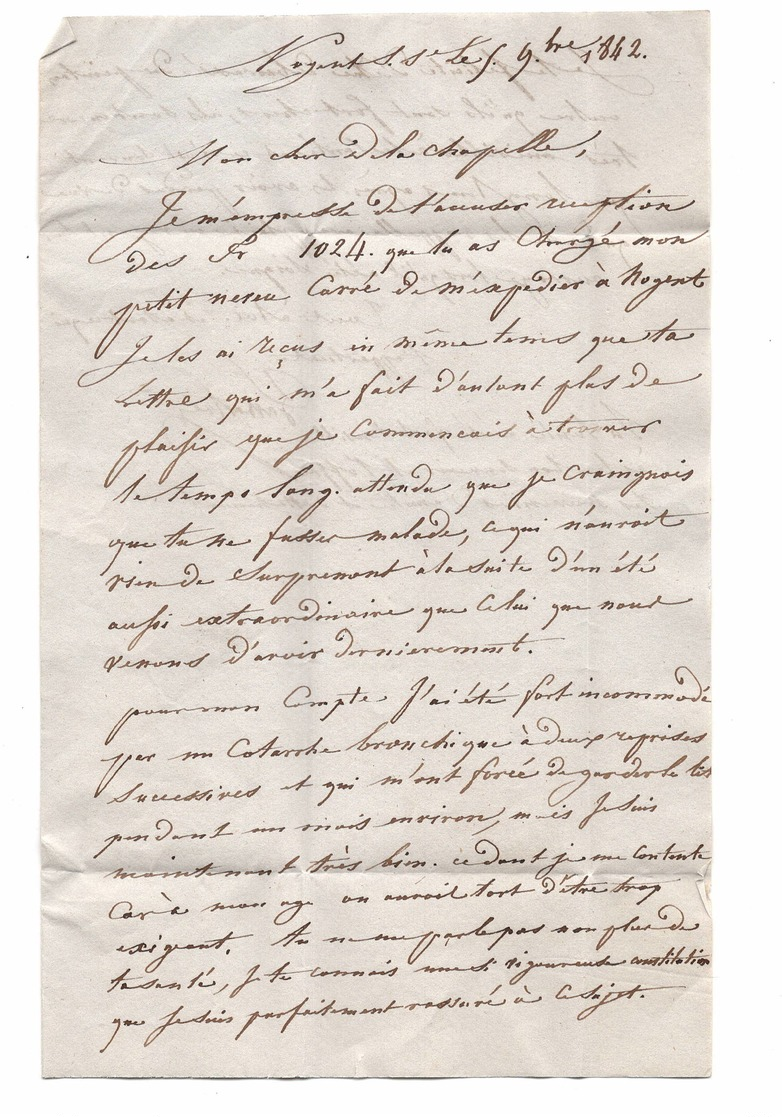 Nogent S. Se Le 5. 9.bre 1842.
Mon cher De la Chapelle,
Je m'empresse de t'accuser reception
des Fr 1024. que tu as Chargé mon
petit neveu Carré de m'expedier à Nogent
Je les ai reçus en même tems que ta
Lettre qui m'a fait d'autant plus de
plaisir que je Commencais à trouver
le temps long. attendu que je craingnois
que tu ne fusses malade, ce qui n'auroit
rien de Surprenant à la suite d'un été
aussi extraordinaire que Celui que nous
venons d'avoir dernierement.
pour mon Compte J'ai été fort incommodé
par un Catarrhe bronchique à deux reprises
Successives et qui m'ont forcé de garder le lit
pendant un mois environ, mais Je suis
maintenant très bien. ce dont je me contente
Car à mon age on auroit tort d'être trop
exigeant. tu ne me parle pas non plus de
ta santé, Je te connais une si vigoureuse constitution
que Je suis parfaitement rassuré à Ce sujet.